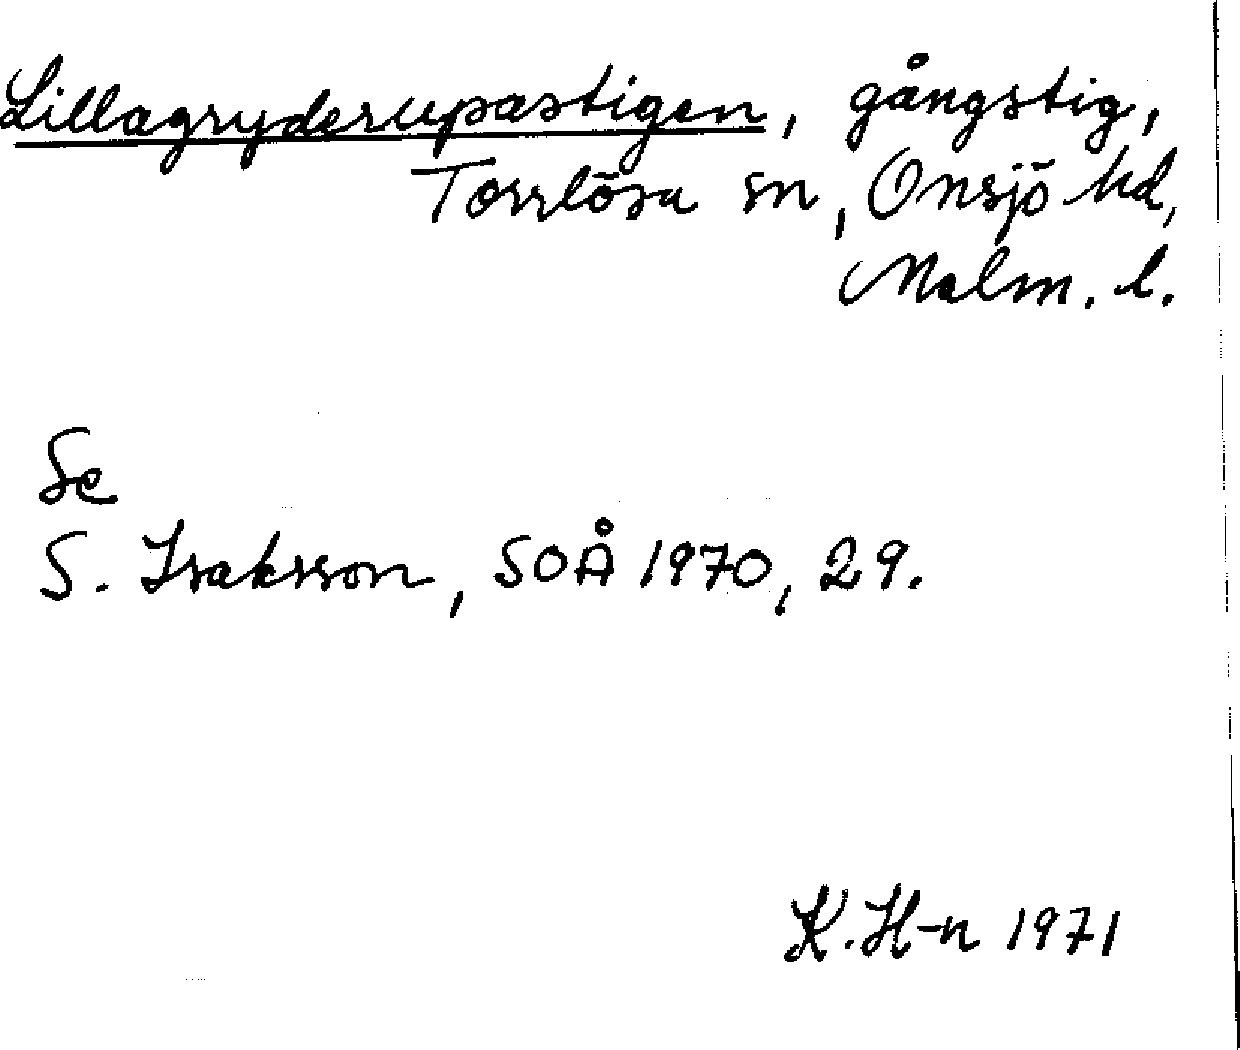 Lillagryderupastigen, gångstig,
Torrlösa sn, Onsjö hd,
Malm. l.
Se
S. Isaksson, SOÅ 1970, 29.
K. H-n 1971